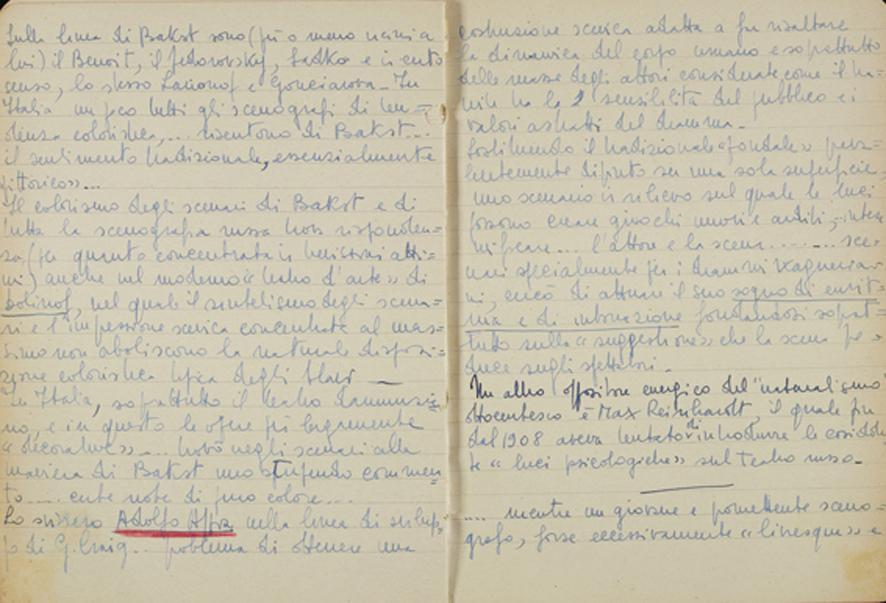 Sulla linea di Bakst sono (più o meno vicini a
lui) il Benoit, il Fedorovskij, Sadko e in certo
senso, lo stesso Larionof e Gonciarova - In
Italia un poco tutti gli scenografi di ten=
denza coloristica,... risentono di Bakst...
il sentimento tradizionale, essenzialmente
pittorico»...
Il colorismo degli scenari di Bakst e di
tutta la scenografia russa trova rispondenz=
za, (per quanto concentrata in
anche nel moderno «teatro d'arte» di
nel quale il sintetismo degli scena=
ri e l'impressione scenica concentrata al mas=
simo non aboliscono la naturale disposi=
zione coloristica tipica degli slavi —
In Italia, soprattutto il teatro dannunzia=
no, e in questo le opere più largamente
«decorative»... trovò negli scenari alla
maniera di Bakst uno stupendo commen=
to..... certe note di puro colore....
Lo svizzero Adolfo Appia nella linea di svilup=
po di G. Craig... problema di ottenere una
costruzione scenica adatta a far risaltare
la dinamica del corpo umano e soprattutto
delle masse degli attori considerate come il tra=
mite tra la sensibilità del pubblico e i
valori astratti del dramma.
Sostituendo il tradizionale «fondale»
dipinto su una sola superficie
uno scenario in rilievo sul quale le luci
possono creare giochi nuovi e arditi,
... l'attore e la scena....... sce=
nari specialmente per i drammi wagneria=
ni, cercò di attuare il suo sogno di
e di fondandosi soprat=
tutto sulla «suggestione» che la scena
duce sugli spettatori.
Un altro oppositore energico del "naturalismo"
ottocentesco è Max Reinhardt, il quale fin
dal 1908 aveva tentato di introdurre le cosidet=
te «luci psicologiche» sul teatro russo.
.... mentre un giovane e promettente sceno=
grafo, forse eccessivamente «livresque» e